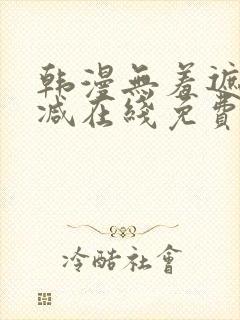 韩漫無羞遮
减在綫免費
冷酷社會